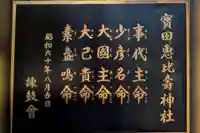 寳田恵比寿神社
事代主命
少彦名命
大國主命
大己貴命
素盞嗚命
昭和六十年八月吉日
諫鼓會